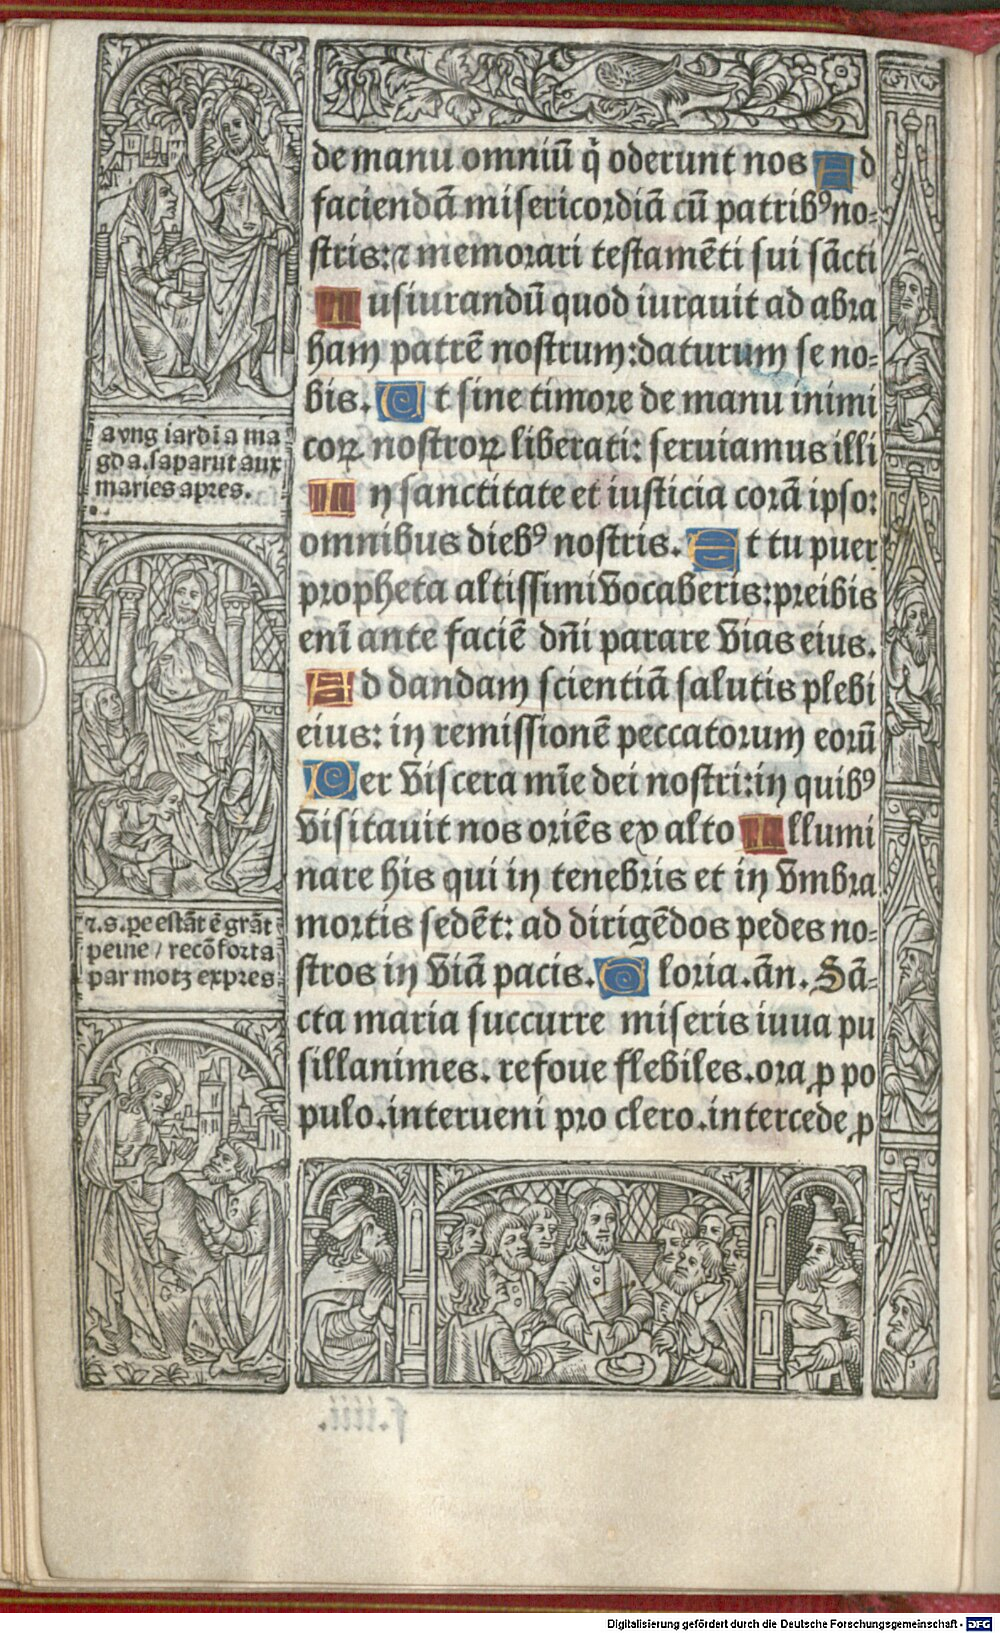 de manu omniū q̄ oderunt nos Ad
faciendā misericordiā cū patribꝰ no⸗
stris: ⁊ memorari testamēti sui sācti
Iusiurandū quod iurauit ad abra
ham patrē nostrum: daturum se no⸗
bis. Ut sine timore de manu inimi
coꝝ nostroꝝ liberati: seruiamus illi
In sanctitate et iusticia corā ipso:
omnibus diebꝰ nostris. Et tu puer
propheta altissimi vocaberis: preibis
enī ante faciē dn̄i parare vias eius.
Ad dandam scientiā salutis plebi
eius: in remissionē peccatorum eorū
Per viscera mīe dei nostri: in quibꝰ
visitauit nos oriēs ex alto Illumi
nare his qui in tenebris et in vmbra
mortis sedēt: ad dirigēdos pedes no⸗
stros in viā pacis. Gloria. an̄. Sā⸗
cta maria succurre miseris iuua pu
sillanimes. refoue flebiles. ora ꝓ po
pulo. interueni pro clero. intercede ꝓ
a vng iardī a ma
gda. saparut aux
maries apres.
⁊. s. pe estāt ē grāt
peine / recōforta
par motz expres
f.iiii.
Digitalisierung gefördert durch die Deutsche Forschungsgemeinschaft - DFG